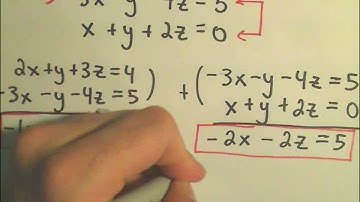 3x y 4z - 5
x + y + 2z = 0
2x+y+3z=4
-3x-y-4z=5)
+(-3x-y-4z=5
x+y+2z=0
-2x-2z=5